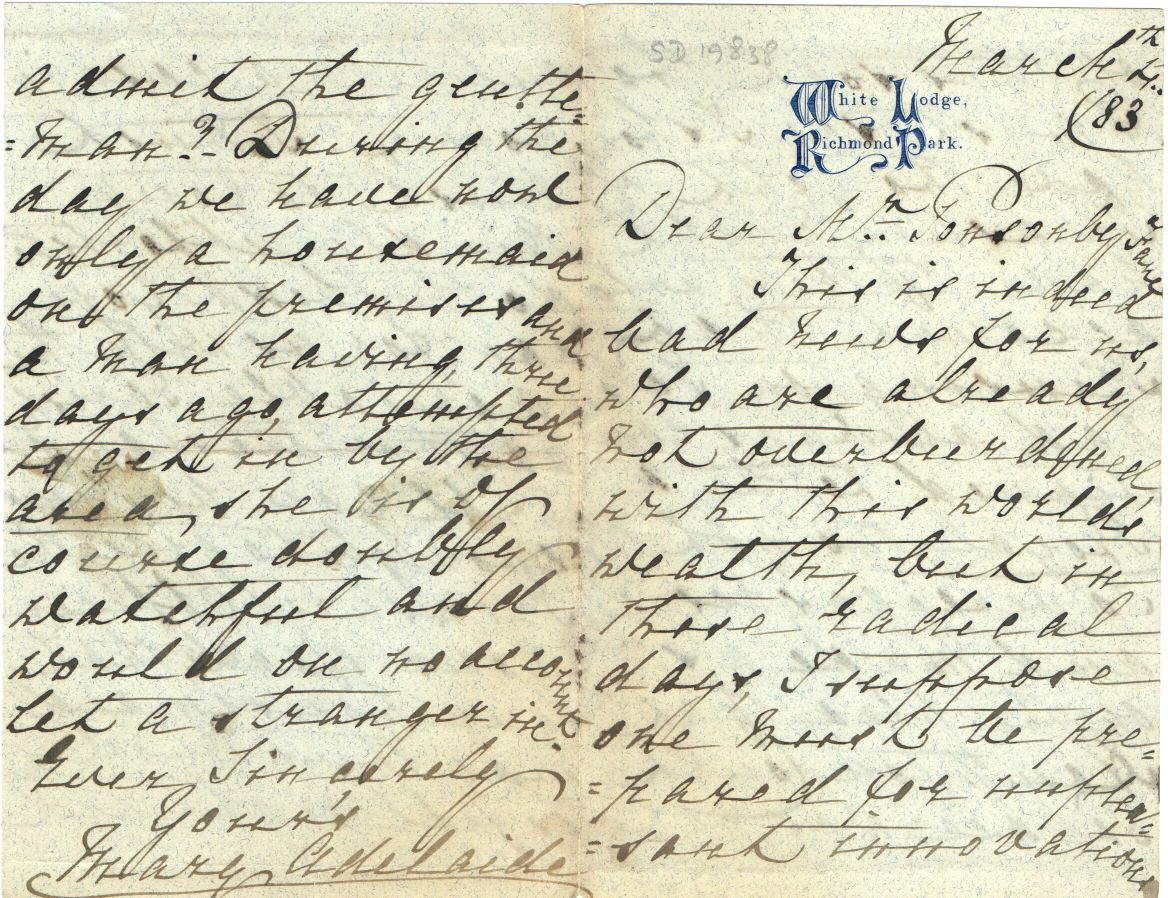 SD 19838
March 4th..
/83
White Lodge,
Richmond Park.
Dear Mr.. Ponsonby Fane
This is indeed
bad news for us,
who are already
not overburdened
with this world's
wealth, but in
these radical
days, I suppose
one must be pre=
=pared for unplea=
=sant innovations
admit the gentle=
=man? - During the
day we have now
only a housemaid
on the premises and
a man having, three
days ago, attempted
to get in by the
area, she is of
course doubly
watchful and
would on no account
let a stranger in.
Ever Sincerely
Your's
Mary Adelaide